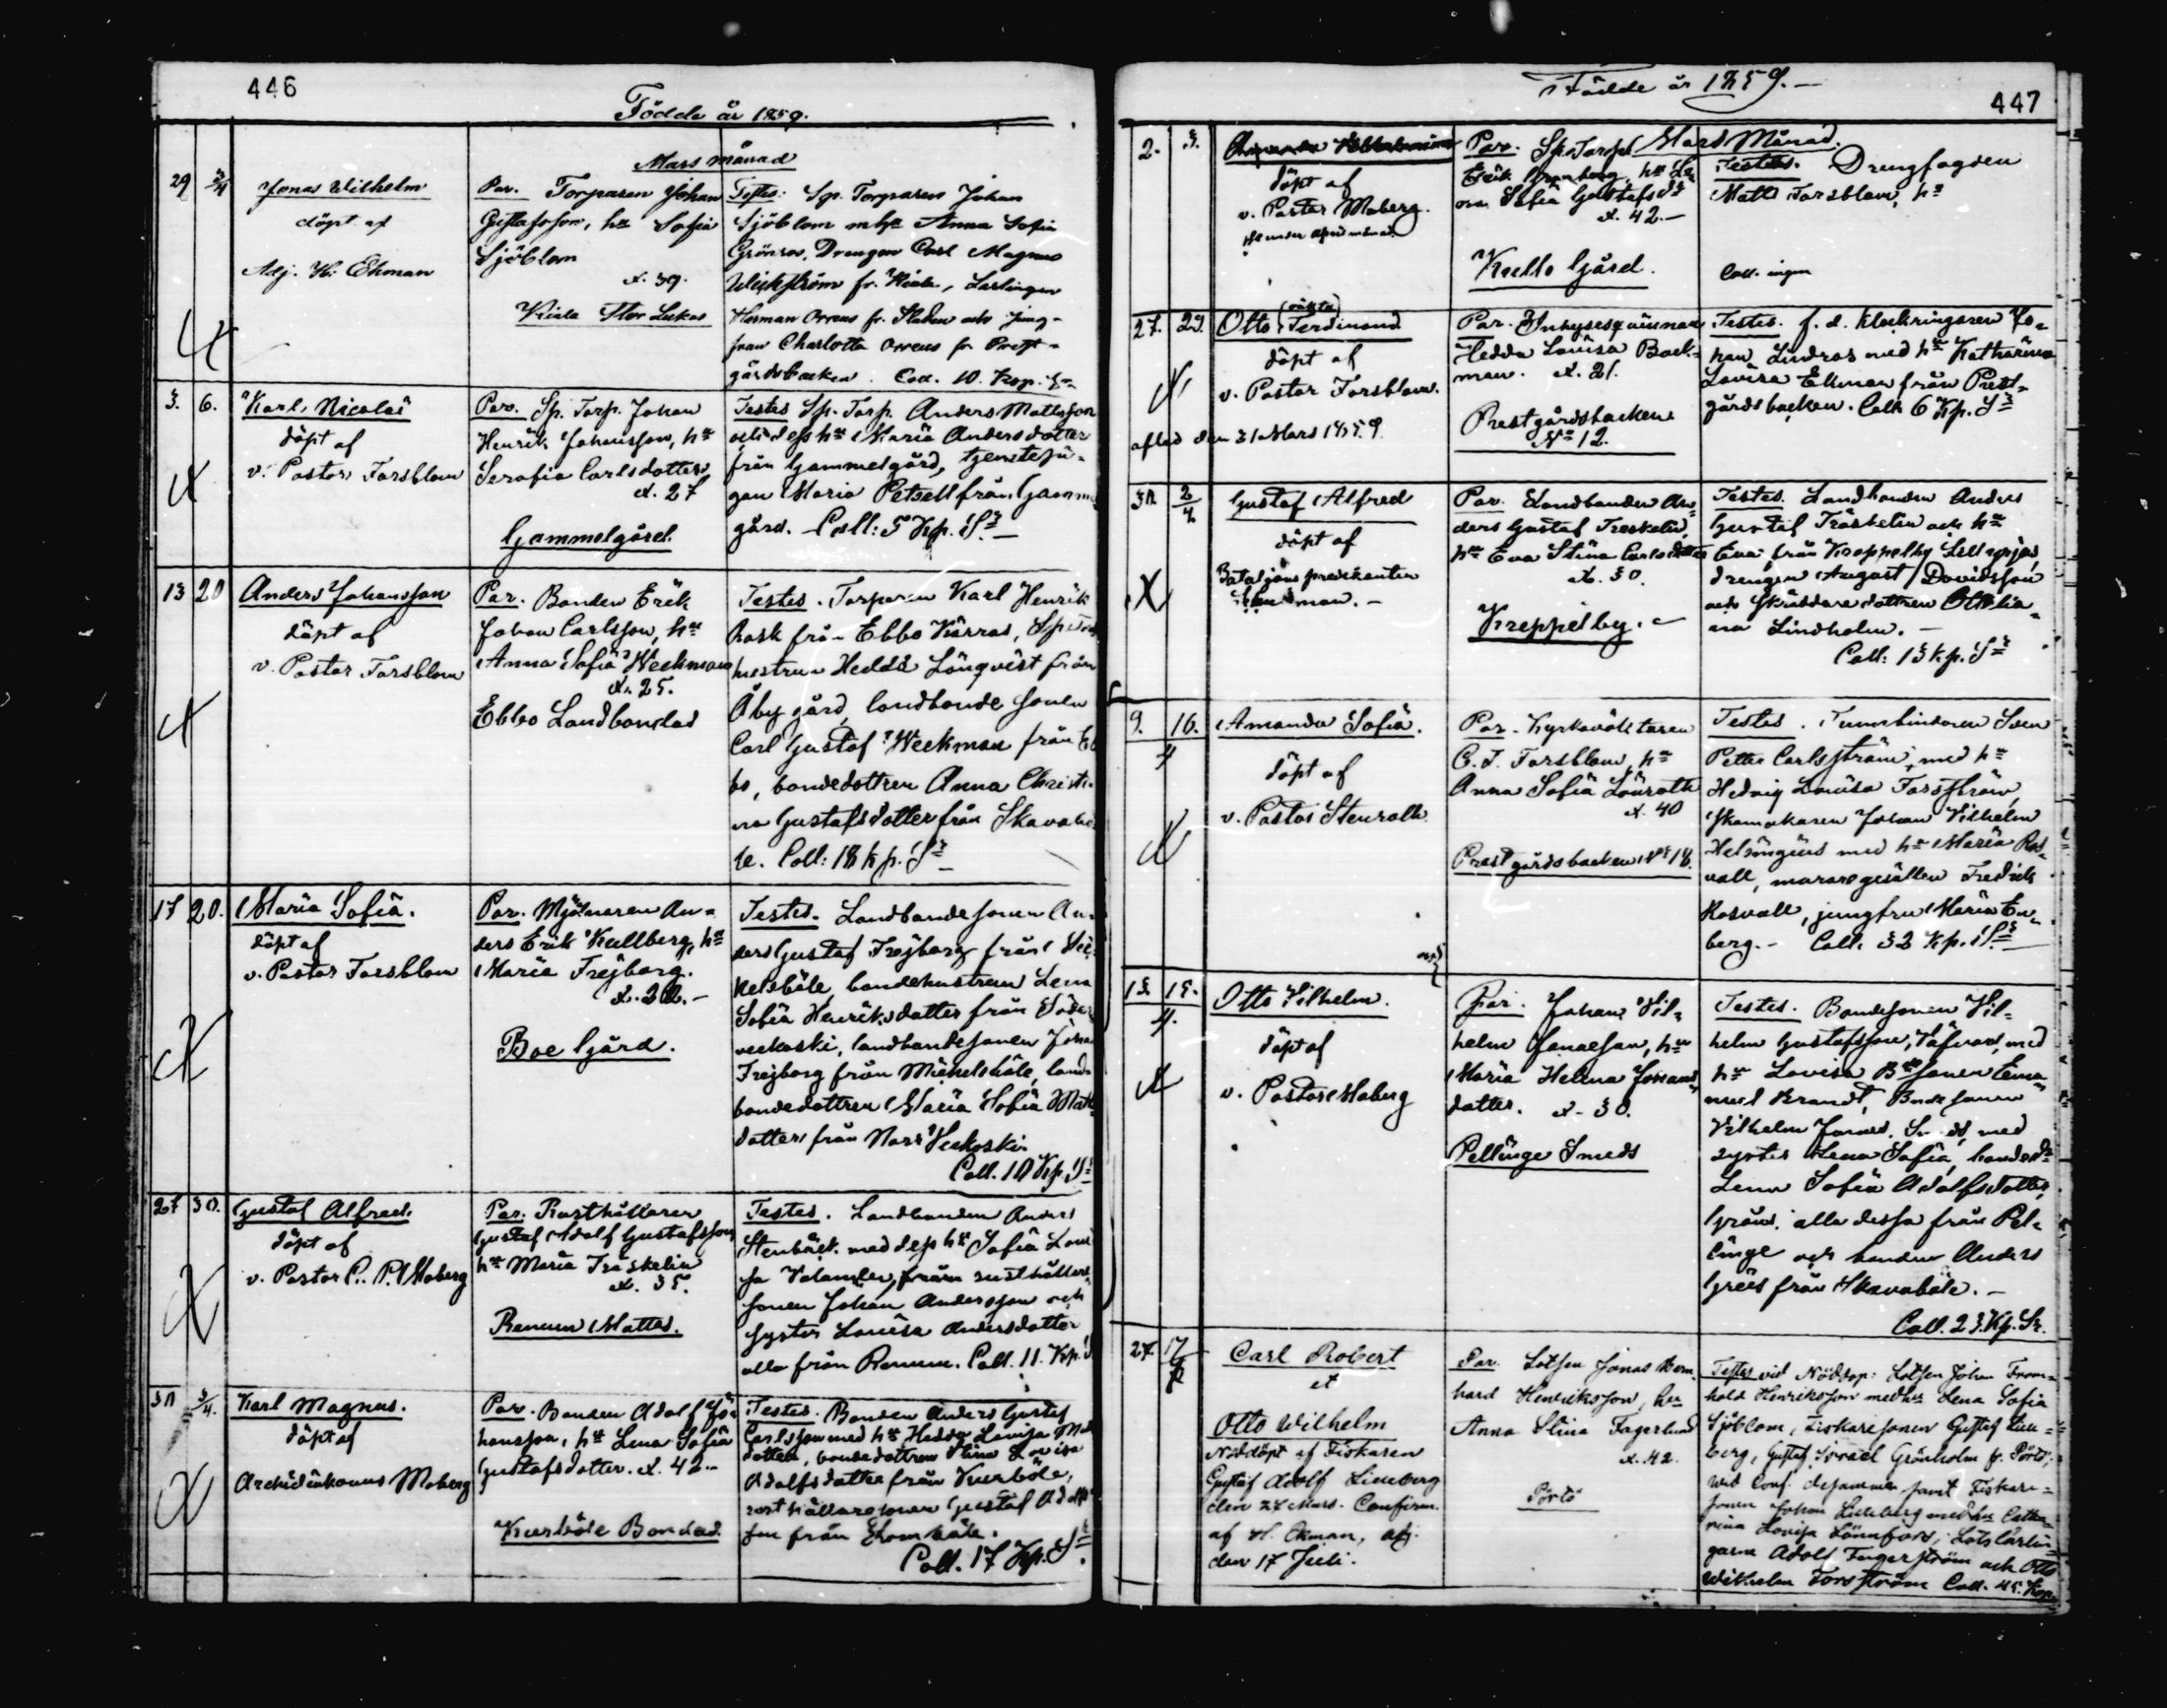 446
Födde år 1859.
Mars månad
29 3/4
Jonas Wilhelm
döpt af
Adj. K. Ekman
Par. Torparen Johan
Gustafsson, hu Sofia
Sjöblom
x. 39.
Kiala Flor Lukas
Testes: Sp. Torparen Johan
Sjöblom m hu Anna Sofia
Grönros, Drengen Carl Magnus
Wickström fr. Kiala, Lärlingen
Herman Orreus fr. Staden och Jung-
frun Charlotta Orreus fr Prest-
gårdsbacken. Coll. 10. Kop. Sr
3. 6.
Karl Nicolai
döpt af
v. Pastor Forsblom
Par. Sp. Torp. Johan
Henrik Johansson, hu
Serafia Carlsdotter
x. 27
Gammelgård.
Testes Sp. Torp. Anders Mattsson
och dess hu Maria Andersdotter
från Gammelgård, tjenstepi-
gan Maria Petsell från Gamm
gård. Coll: 5 Kp. Sr
13 20
Anders Johansson
döpt af
v. Pastor Forsblom
Par. Bonden Erik
Johan Carlsson, hu
Anna Sofia Weckman
x. 25.
Ebbo Landbondas
Testes. Torparen Karl Henrik
Rask från Ebbo Kärras, Sp Torp
hustrun Hedda Lönqvist från
Åby gård, landbonde sonen
Carl Gustaf Weckman från Eb
bo, bondedottren Anna Christi-
na Gustafsdotter från Skavabö
le. Coll: 18 kp. Sr
17 20.
Maria Sofia.
döpt af
v. Pastor Forsblom
Par. Mjölnaren An-
ders Erik Kullberg, hu
Maria Frejborg.
x. 22.
Boe Gård.
Testes. Landbondesonen An-
ders Gustaf Frejborg från Mic
kelsböle, bondehustrun Lena
Sofia Henriksdotter från Söder
veckoski, landbondesonen Johan
Frejborg från Mickelsböle, land-
bondedottren Maria Sofia Matts
dotter från Norr Veckoski.
Coll. 10 Kp. Sr
27 30.
Gustaf Alfred.
döpt af
v. Pastor C. P. Moberg
Par. Rusthållaren
Gustaf Adolf Gustafsson
hu Maria Träskelin
x. 35.
Renum Mattas.
Testes. Landbonden Anders
Stenbäck med dess hu Sofia Lovi
sa Valander, från rusthållare
sonen Johan Andersson och
syster Lovisa Andersdotter
alla från Renum. Coll. 11. Kp.
30 3/4.
Karl Magnus.
döpt af
Archidiakonus Moberg
Par. Bonden Adolf Jo-
hansson, hu Lena Sofia
Gustafsdotter. x. 42.
Kurböle Bondas.
Testes. Bonden Anders Gustaf
Carlsson med hu Hedda Lovisa Mats
dotter, bondedottren Stina Lovisa
Adolfsdotter från Kurböle,
rusthållaresonen Gustaf Adolfs
son från Skomböle.
Coll. 17 Kp. Sr
Födde år 1859.
447
Mars Månad.
2. 3.
döpt af
v. Pastor Moberg.
Par. Sp. Torpar
Erik Granberg, hu Le
na Sofia Gustafsdr
x. 42.
Kullo Gård.
Testes. Drengfogden
Matts Forsblom, hu
Coll. ingen
27. 29.
Otto (oäkta) Ferdinand
döpt af
v. Pastor Forsblom.
aflad den 31 Mars 1859.
Par. Inhysesqvinnan
Hedda Lovisa Back-
man. x. 21.
Prestgårdsbacken
No 12.
Testes. f. d. klockringaren Jo-
han Lindros med hu Katharina
Lovisa Ekman från Prest-
gårdsbacken. Coll. 6 Kp. Sr
30. 2/4
Gustaf Alfred
döpt af
Bataljons predikanten
Par. Landbonden An-
ders Gustaf Treskelin,
hu Eva Stina Carlsdotter
x. 30.
Kreppelby.
Testes. Landbonden Anders
Gustaf Träskelin och hu
Eva, från Kreppelby
drengen August Davidsson
och skräddare dottren Othilia-
na Lindholm.
Coll: 13 kp. Sr
9. 16.
4
Amanda Sofia.
döpt af
v. Pastor Stenroth
Par. Kyrkoväktaren
C. J. Forsblom, hu
Anna Sofia Lönroth
x. 40
Prestgårdsbacken No 18.
Testes. Tunnbindaren Sven
Petter Carlsström, med hu
Hedvig Lovisa Forsström,
Skomakaren Johan Vilhelm
Helsingius med hu Maria Ros-
vall, muraregesällen Fredrik
Rosvall, jungfru Maria En-
berg. Coll. 32 Kp. Sr
15. 15.
4.
Otto Vilhelm.
döpt af
v. Pastor Moberg
Par. Johan Vil-
helm Jonasson, hu
Maria Helena Johans
dotter. x. 30.
Pellinge Smeds
Testes. Bondesonen Vil-
helm Gustafsson, med
hu Lovisa, Bdesonen Ema-
nuel Brandt, Bondesonen
Vilhelm Jonas. med
syster Lena Sofia, bondedr
Lena Sofia Adolfsdotter,
alla dessa från Pel-
linge och bonden Anders
från Skavaböle.
Coll. 23. Kp. Sr.
27 17/7
Carl Robert
et
Otto Wilhelm
Nöddöpt af Fiskaren
Gustaf Adolf Lineberg
den 28 Mars. Confirm.
af H. Ekman, adj.
den 17 Juli.
Par. Lotsen Jonas Bern
hard Henriksson, hu
Anna Stina Fagerlund
x. 42.
Pörtö
Testes vid Nöddop: Lotsen Johan From-
hold Henriksson med hu Lena Sofia
Sjöblom, Fiskaresonen Gustaf Line-
berg, Gustaf Israel Grönholm fr. Pörtö;
wid Conf. desamma samt Fiskare-
sonen Johan Lineberg med hu Catha-
rina Lovisa Lönnfors, Lotslärlin-
garne Adolf Fagerström och Otto
Wilhelm Forsström Coll. 45. Kop.